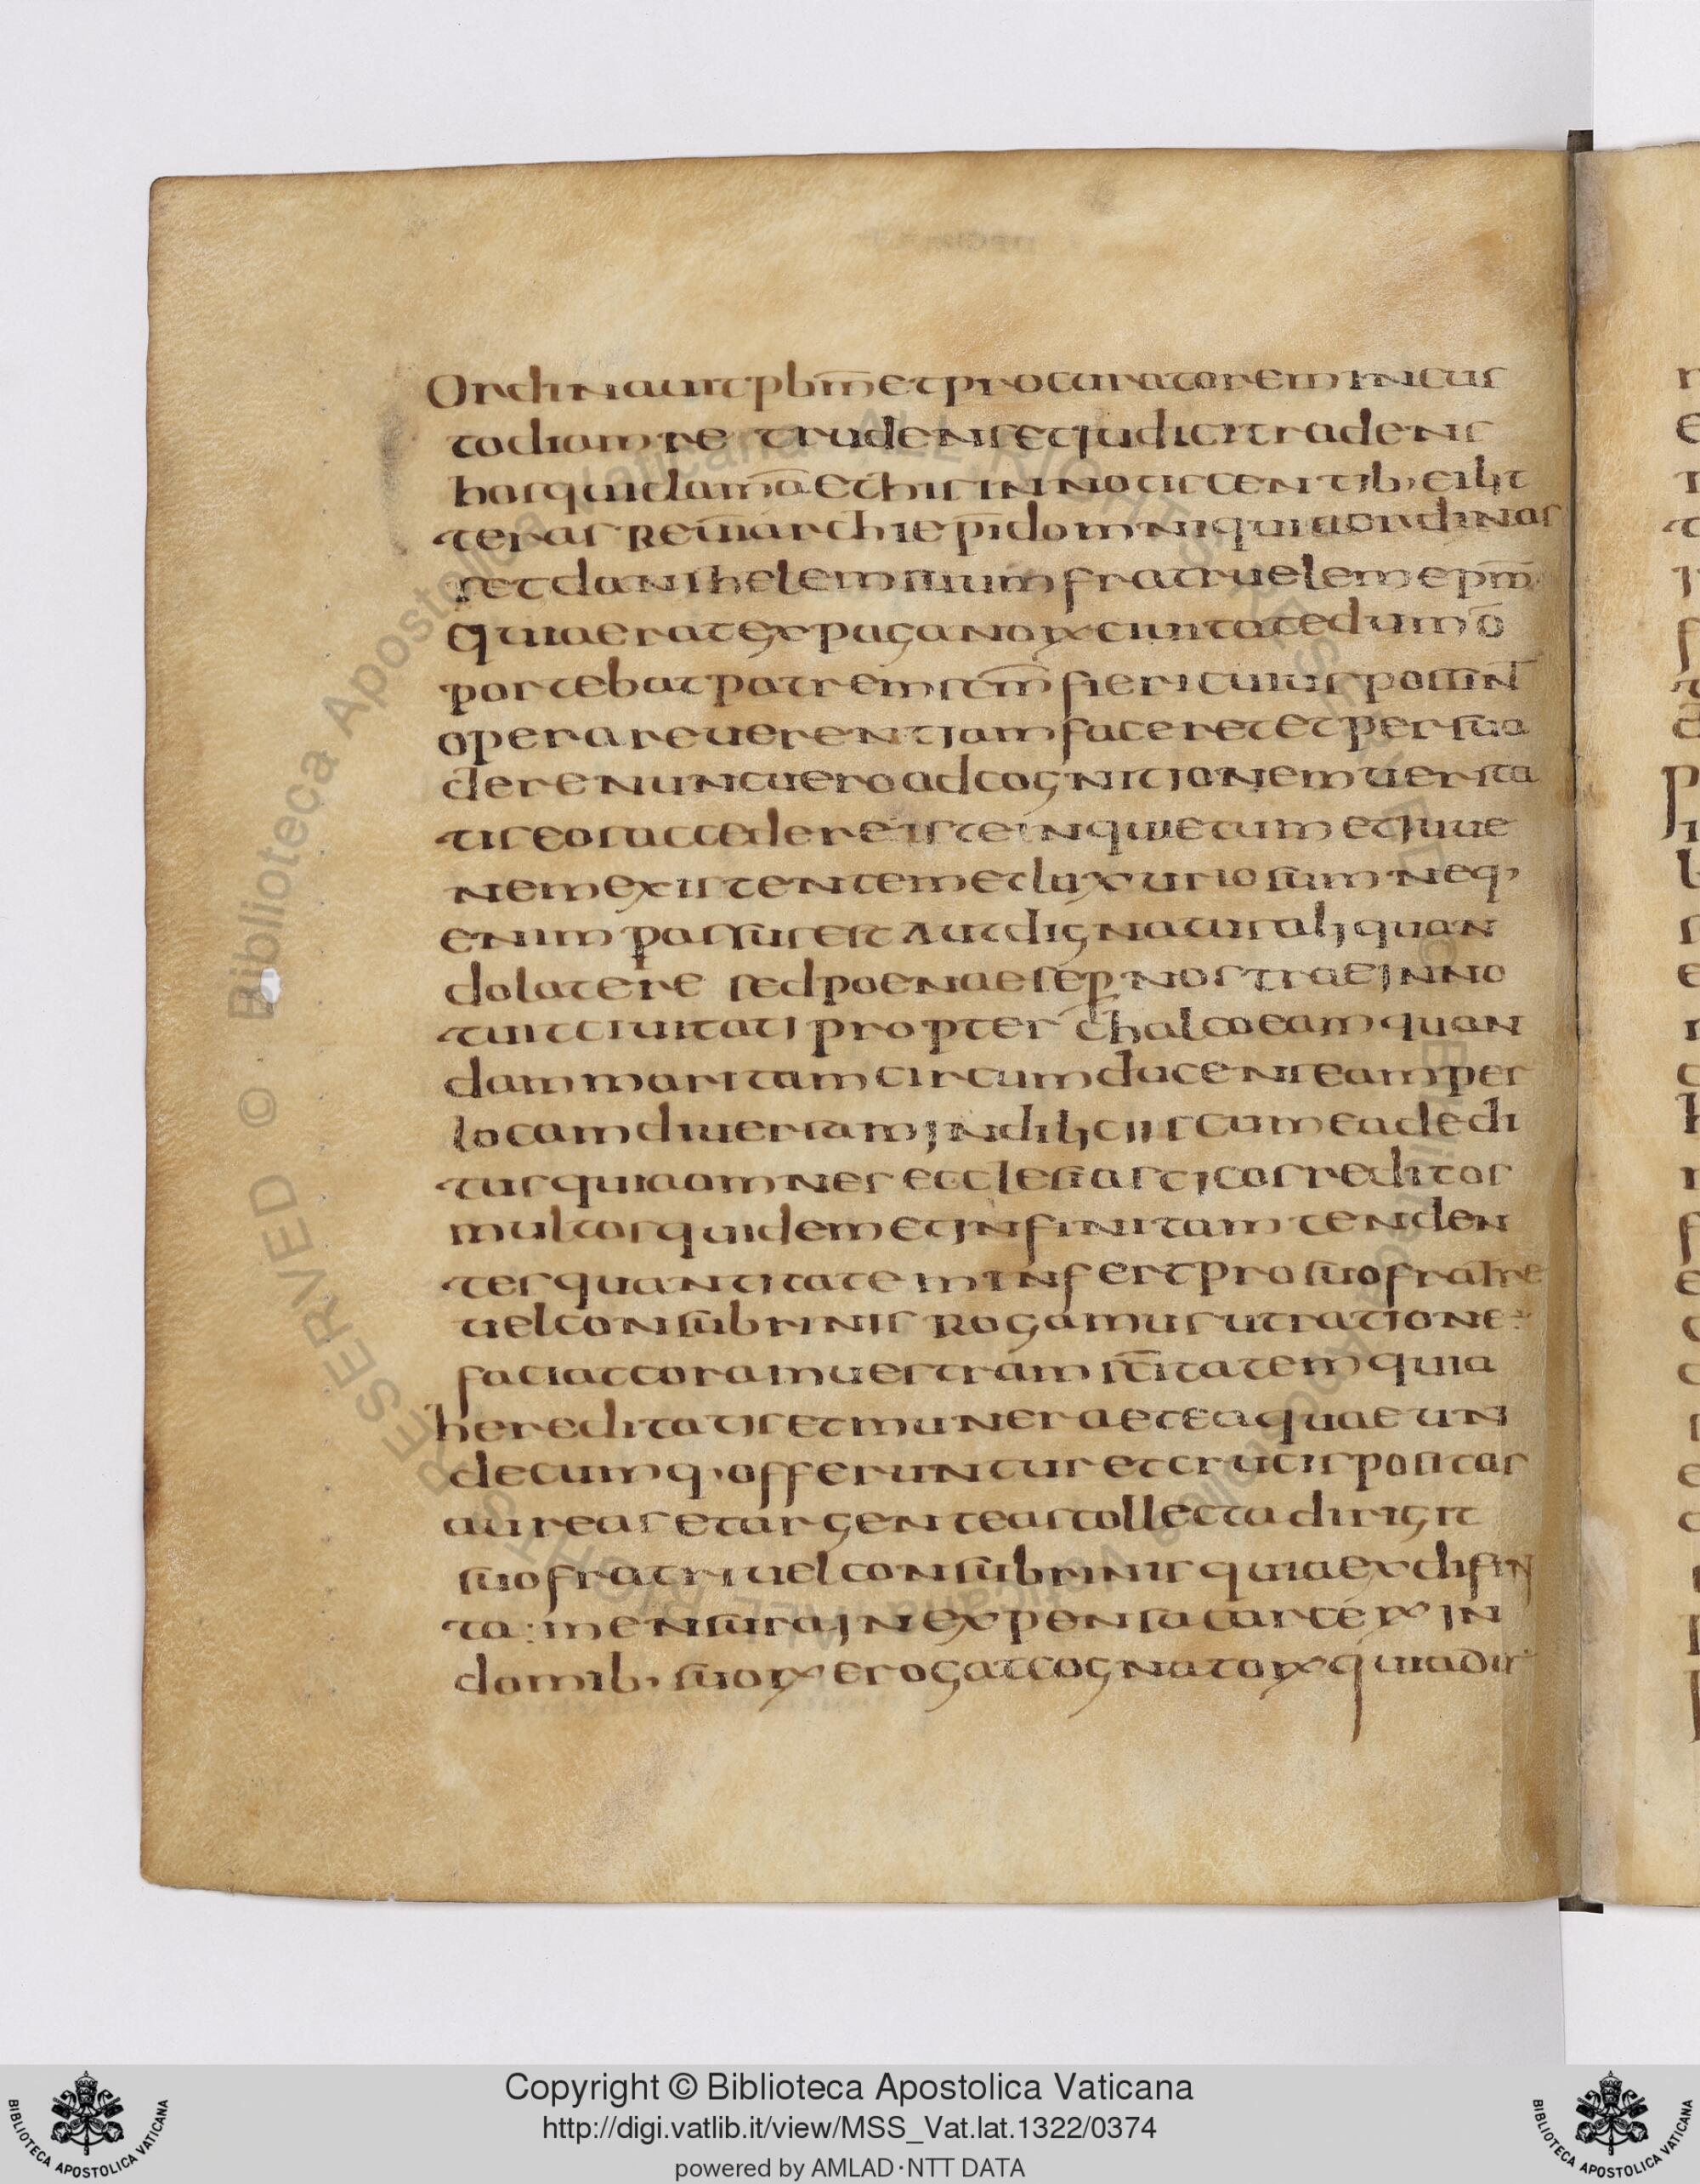 Ordinauit pbm̄ et procuratorem in cus
todiam re trudens et judici tradens
hos qui clamā et his innotiscentib, ei lit
teras Reūm archiepī domni quia ordinas
set danihelem suum fratruelem epm̄
quia erat ex paganoꝝ ciuitate dum ō
portebat patrem scm̄ fieri cuius possin̄t
opera reuerentjam facere et et persua
dere nunc uero ad cognitjonem uerita
tis eos accedere iste inquietum et juue
nem existentem et luxuriosum neq,
enim passus est aut dignatus ali quan
do latere sed poenae sep̄ nostrae jnno
tuit ciuitati propter chalcoeam quan
dam maritam circumducens eam per
locam diuersam jn diliciis cum ea dedi
tus quia omnes ecclesiastjcos reditos
multos quidem et jnfinitam tenden
tes quantitatem infert pro suo fratre
uel consubrinis Rogamus ut ratjone
faciat coram uestram scītatem quia
hereditatis et munera et ea quae un
decumq, offeruntur et crucis positas
aureas et argenteas collecta dirigit
suo fratri uel consubrinis quia ex difinj
ta: mensura jn expensa carceꝝ in
domib, suoꝝ erogat cognatoꝝ quia dir
Copyright © Biblioteca Apostolica Vaticana
http://digi.vatlib.it/view/MSS_Vat.lat.1322/0374
powered by AMLAD·NTT DATA
BIBLIOTECA APOSTOLICA VATICANA
BIBLIOTECA APOSTOLICA VATICANA